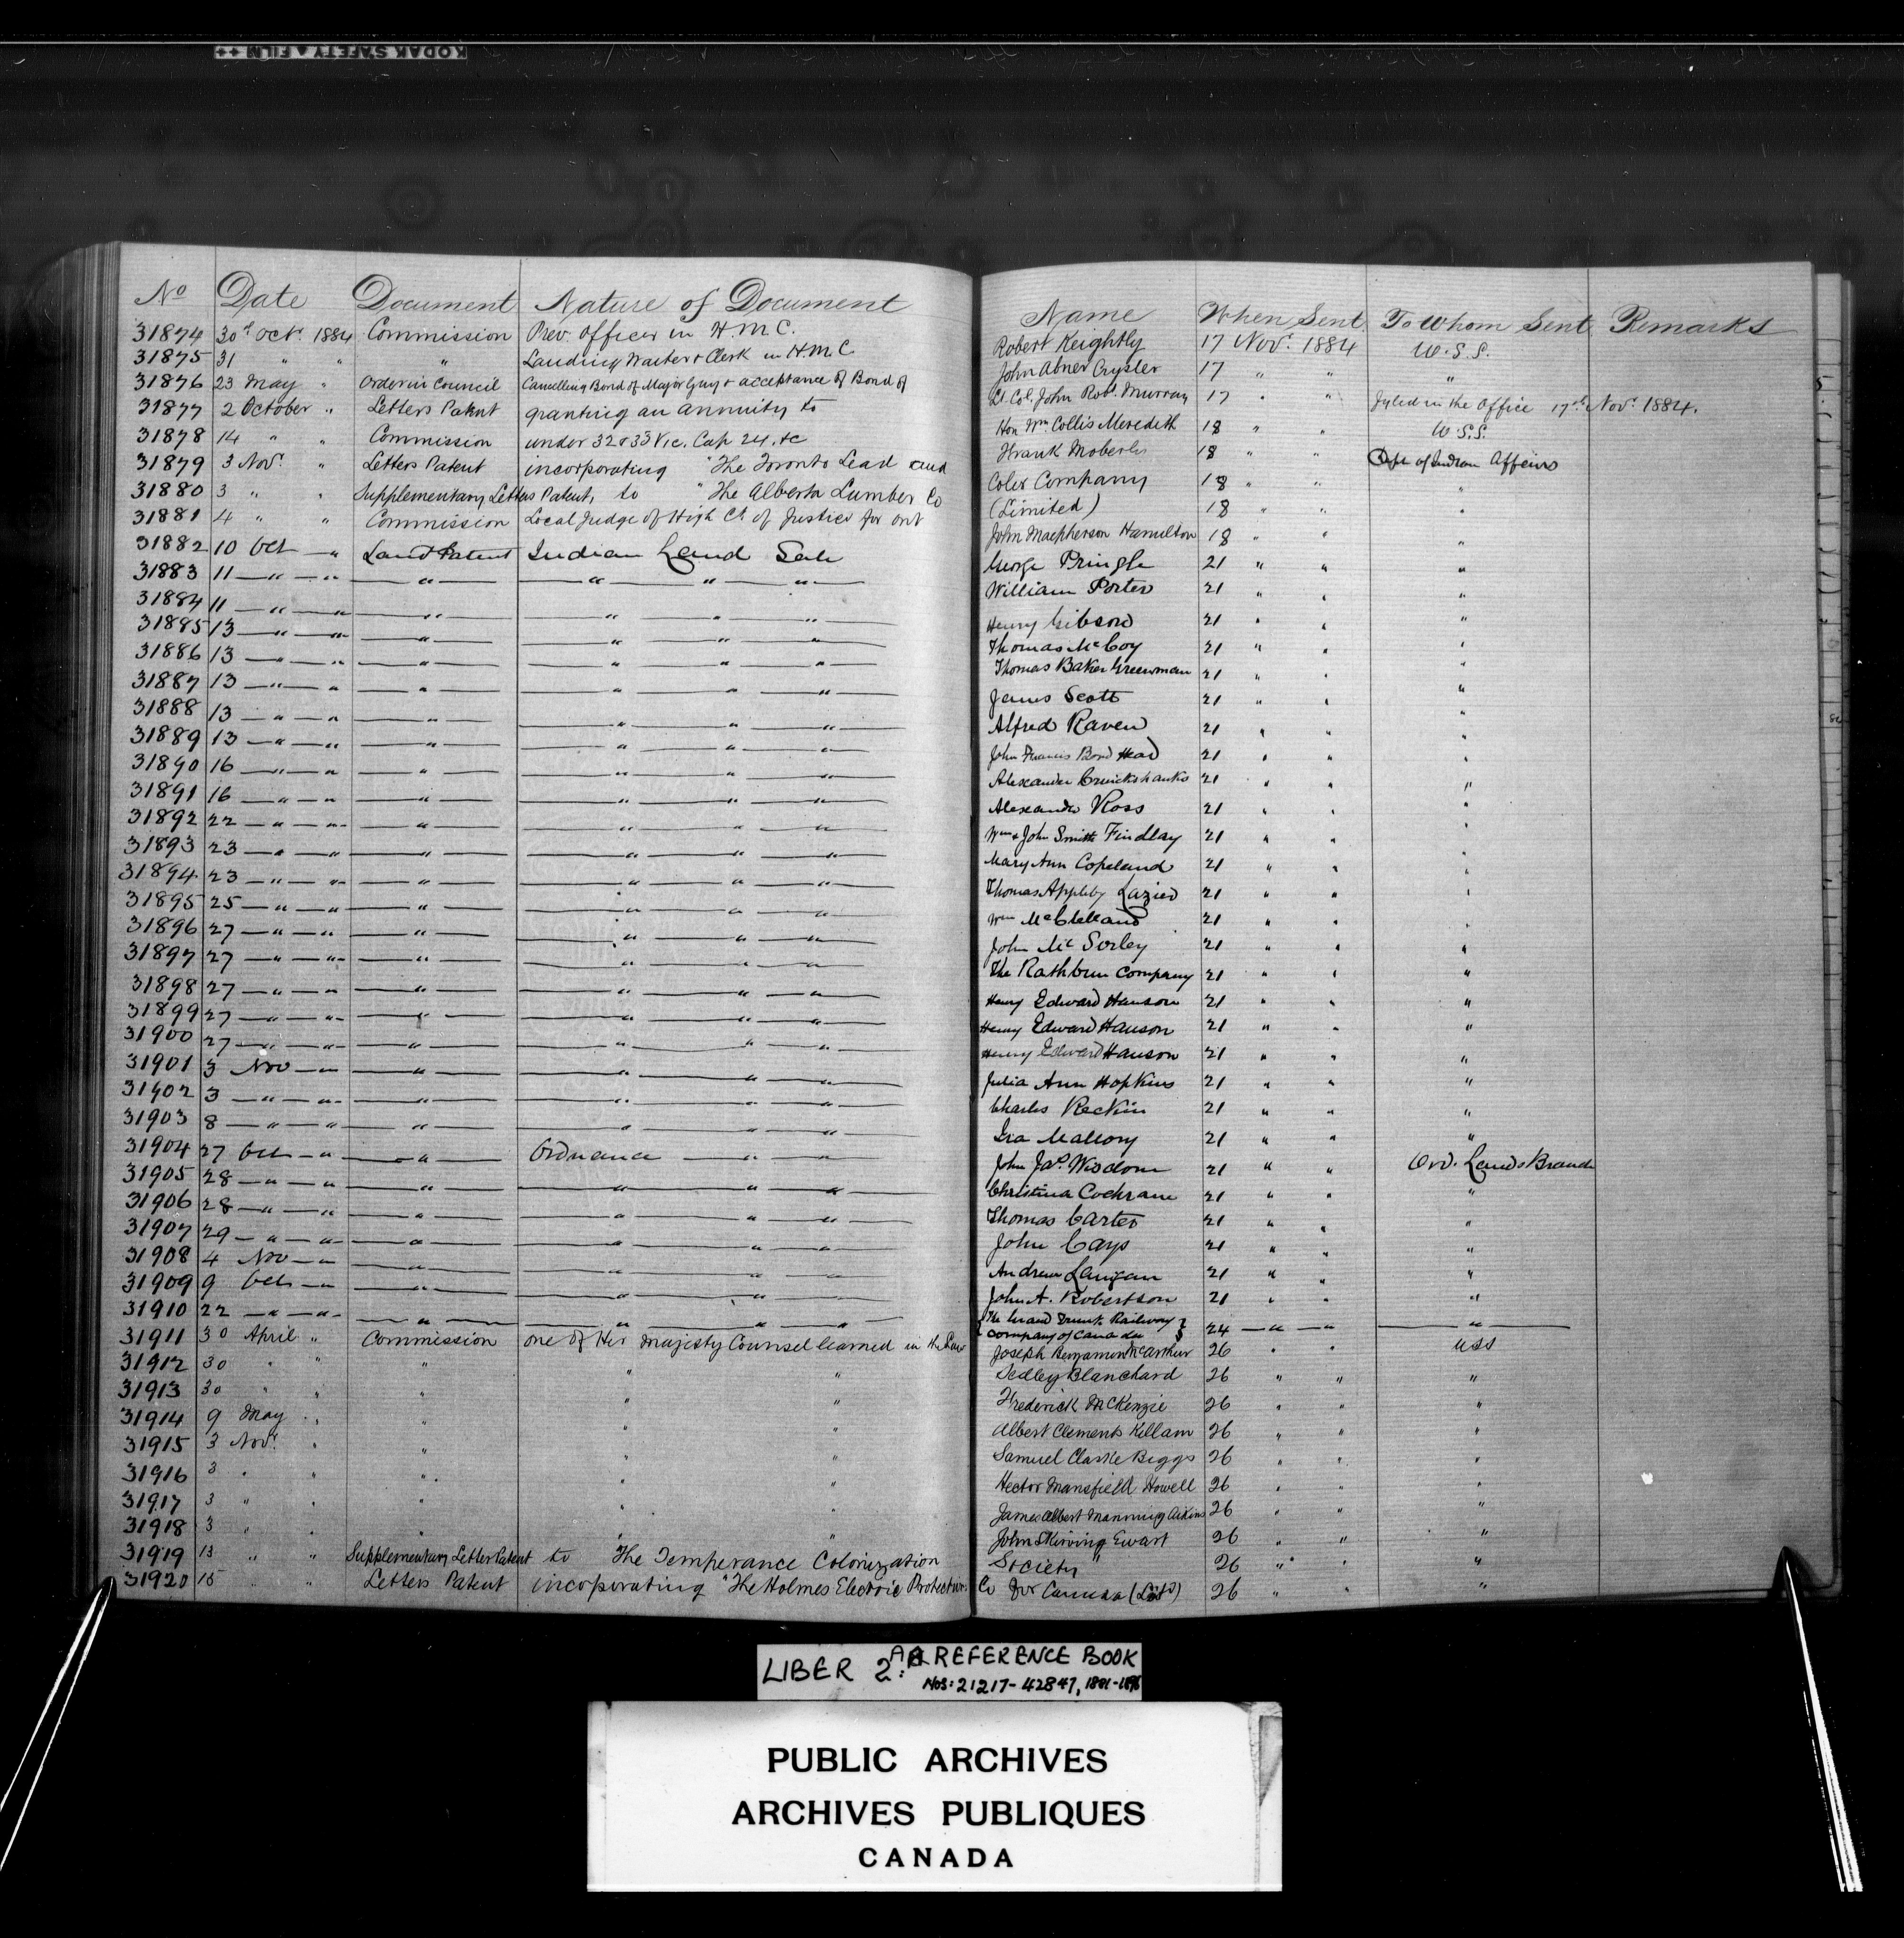 KODAK SAFETY FILM ++
No Date Document Nature of Document Name When Sent To Whom Sent Remarks
31874 30th Octr 1884 Commission Prev. Officer in H.M.C. Robert Keightly 17 Novr 1884 U.S.S.
31875 31 " " " Landing Waiter & Clerk in H.M.C John Abner Crysler 17 " " "
31876 23 May " Order in Council Cancelling Bond of Major Guy & acceptance of Bond of Lt Col. John Robt. Murray 17 " " Fyled in the Office 17th Novr 1884.
31877 2 October " Letters Patent granting an annuity to Hon Wm Collis Meredith 18 " " U.S.S.
31878 14 " " Commission under 32 & 33 Vic. Cap 24. &c Frank Moberly 18 " " Dept of Indian Affairs
31879 3 Novr " Letters Patent incorporating "The Toronto Lead and Color Company 18 " " "
31880 3 " " Supplementary Letters Patent, to "The Alberta Lumber Co (Limited) 18 " " "
31881 4 " " Commission Local Judge of High Ct of Justice for Ont John Macpherson Hamilton 18 " " "
31882 10 Oct " Land Patent Indian Land Sale George Pringle 21 " " "
31883 11 " " " " " " William Porter 21 " " "
31884 11 " " " " " " Henry Gibson 21 " " "
31885 13 " " " " " " Thomas McCoy 21 " " "
31886 13 " " " " " " Thomas Baker Greenman 21 " " "
31887 13 " " " " " " James Scott 21 " " "
31888 13 " " " " " " Alfred Raven 21 " " "
31889 13 " " " " " " John Francis Bond Head 21 " " "
31890 16 " " " " " " Alexander Cruickshanks 21 " " "
31891 16 " " " " " " Alexander Ross 21 " " "
31892 22 " " " " " " Wm & John Smith Findlay 21 " " "
31893 23 " " " " " " Mary Ann Copeland 21 " " "
31894 23 " " " " " " Thomas Appleby Lazier 21 " " "
31895 25 " " " " " " Wm McClelland 21 " " "
31896 27 " " " " " " John Mc Sorley 21 " " "
31897 27 " " " " " " The Rathbun Company 21 " " "
31898 27 " " " " " " Henry Edward Hanson 21 " " "
31899 27 " " " " " " Henry Edward Hanson 21 " " "
31900 27 " " " " " " Henry Edward Hanson 21 " " "
31901 3 Nov " " " " " Julia Ann Hopkins 21 " " "
31902 3 " " " " " " Charles Reckin 21 " " "
31903 8 " " " " " " Ira Mallory 21 " " "
31904 27 Oct " " Ordnance " " John Jas. Wisdom 21 " " Ord. Lands Branch
31905 28 " " " " " " Christina Cochrane 21 " " "
31906 28 " " " " " " Thomas Carter 21 " " "
31907 29 " " " " " " John Cays 21 " " "
31908 4 Nov " " " " " Andrew Lanigan 21 " " "
31909 9 Oct " " " " " John A. Robertson 21 " " "
31910 22 " " " " " " The Grand Trunk Railway Company of Canada 24 " " "
31911 30 April " Commission one of Her Majesty Counsel learned in the Law Joseph Benjamin McArthur 26 " " USS
31912 30 " " " " " Sedley Blanchard 26 " " "
31913 30 " " " " " Frederick McKenzie 26 " " "
31914 9 May " " " " Albert Clements Killam 26 " " "
31915 3 Novr " " " " Samuel Clarke Biggs 26 " " "
31916 3 " " " " " Hector Mansfield Howell 26 " " "
31917 3 " " " " " James Albert Manning Aikins 26 " " "
31918 3 " " " " " John Skirving Ewart 26 " " "
31919 13 " " Supplementary Letter Patent to The Temperance Colonization Society" 26 " " "
31920 15 " " Letters Patent incorporating "The Holmes Electric Protection Co for Canada (Ltd) 26 " " "
LIBER 2: REFERENCE BOOK
NOS: 21217-42847, 1881-1896
PUBLIC ARCHIVES
ARCHIVES PUBLIQUES
CANADA